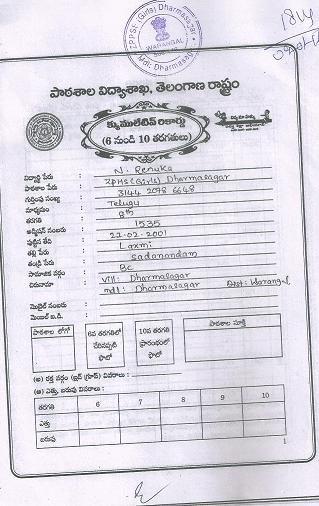 ZPPSS (Girls) Dharmasagar
WARANGAL
Mdl: Dharmasagar
పాఠశాల విద్యాశాఖ, తెలంగాణ రాష్ట్రం
క్యుములేటివ్ రికార్డు
(6 నుండి 10 తరగతులు)
విద్యార్థి పేరు : N. Renuka
పాఠశాల పేరు : ZPHS (Girls) Dharmasagar
గుర్తింపు సంఖ్య : 3144 2078 6648
మాధ్యమం : Telugu
తరగతి : 8th
అడ్మిషన్ నంబరు : 1535
పుట్టిన తేది : 22-02-2001
తల్లి పేరు : Laxmi
తండ్రి పేరు : Sadanandam
సామాజిక వర్గం : BC
చిరునామా : Vill: Dharmasagar
mdl: Dharmasagar Dist: Warangal
మొబైల్ నంబరు :
మెయిల్ ఐ.డి. :
పాఠశాల లోగో
6వ తరగతిలో చేరినప్పటి ఫొటో
10వ తరగతి ప్రారంభంలో ఫొటో
పాఠశాల సూక్తి
(అ) రక్త వర్గం (బ్లడ్ గ్రూప్) వివరాలు :
(ఆ) ఎత్తు, బరువు వివరాలు :
తరగతి 6 7 8 9 10
ఎత్తు
బరువు
1